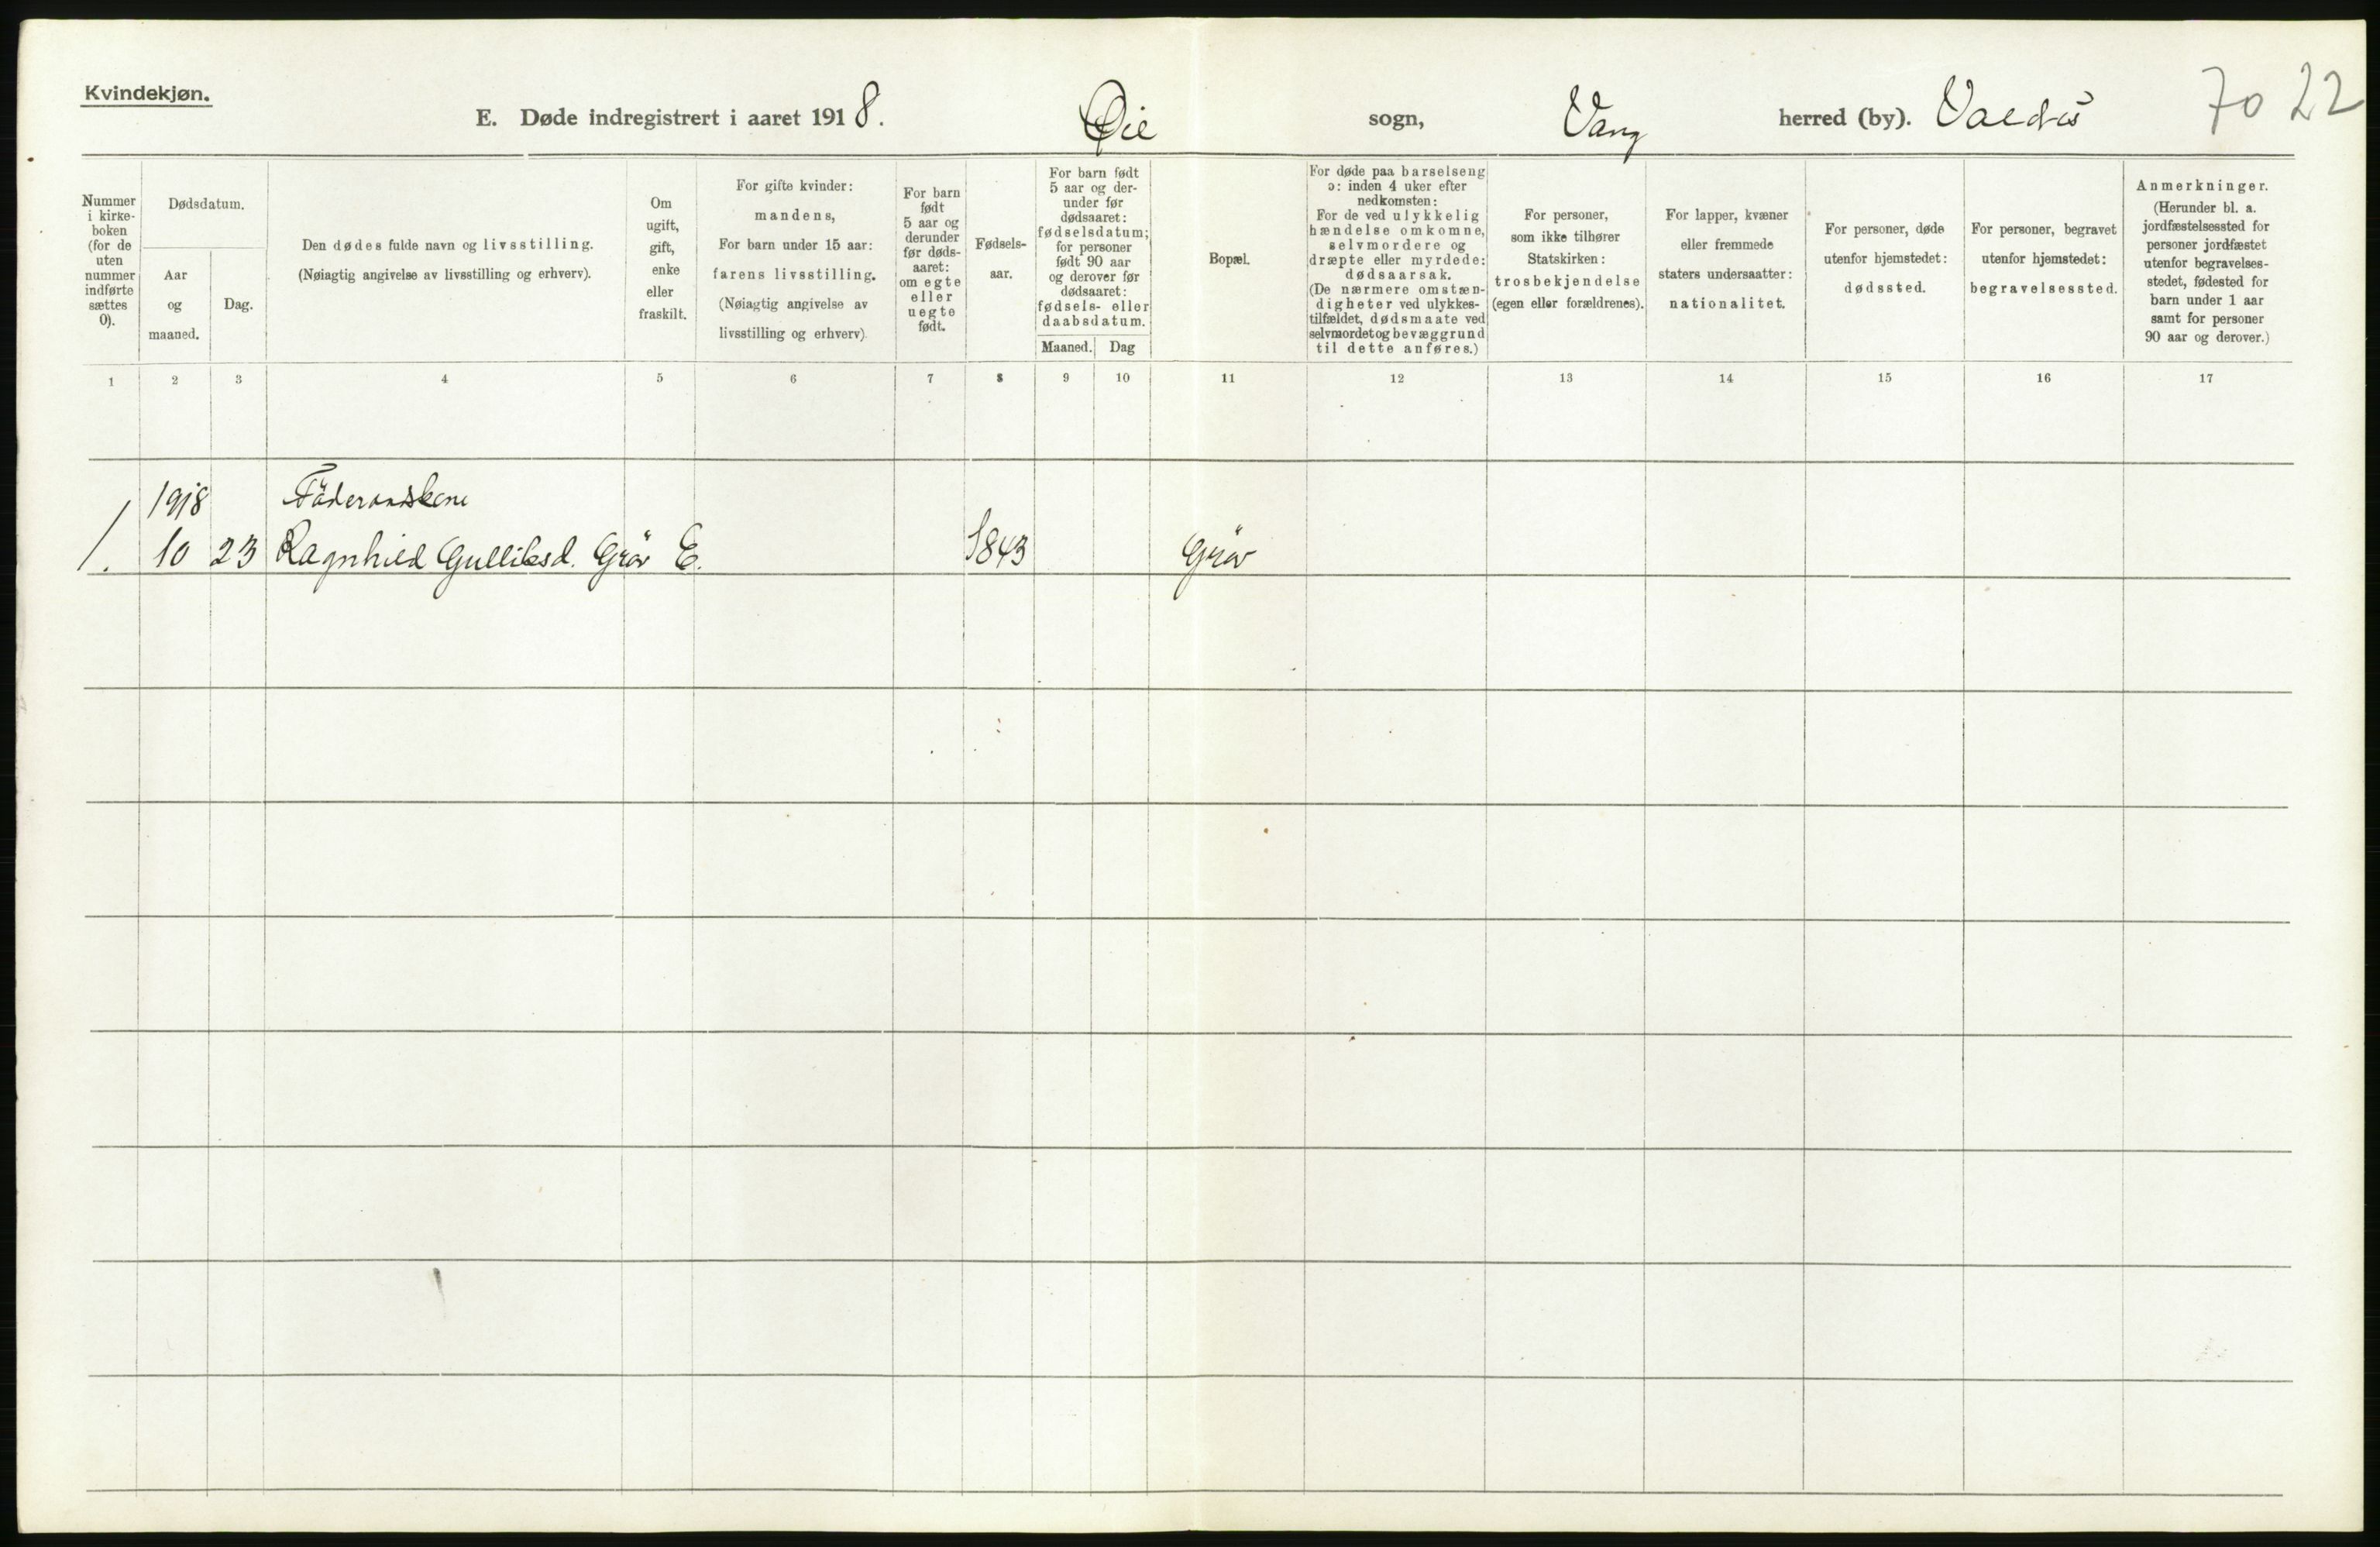 Kvindekjøn.
E. Døde indregistrert i aaret 1918. Øie sogn, Vang herred (by). Valdris 70 22
Nummer
i kirke-
boken
(for de
uten
nummer
indførte
sættes
0).
Dødsdatum.
Aar
og
maaned.
Dag.
Den dødes fulde navn og livsstilling.
(Nøiagtig angivelse av livsstilling og erhverv).
Om
ugift,
gift,
enke
eller
fraskilt.
For gifte kvinder:
mandens,
For barn under 15 aar:
farens livsstilling.
(Nøiagtig angivelse av
livsstilling og erhverv)
For barn
født
5 aar og
derunder
før døds-
aaret:
om egte
eller
uegte
født.
Fødsels-
aar.
For barn født
5 aar og der-
under før
dødsaaret:
fødselsdatum;
for personer
født 90 aar
og derover før
dødsaaret:
fødsels- eller
daabsdatum.
Maaned. Dag
Bopæl.
For døde paa barselseng
ɔ: inden 4 uker efter
nedkomsten:
For de ved ulykkelig
hændelse omkomne,
selvmordere og
dræpte eller myrdede:
dødsaarsak.
(De nærmere omstæn-
digheter ved ulykkes-
tilfældet, dødsmaate ved
selvmordet og bevæggrund
til dette anføres.)
For personer,
som ikke tilhører
Statskirken:
trosbekjendelse
(egen eller forældrenes).
For lapper, kvæner
eller fremmede
staters undersaatter:
nationalitet.
For personer, døde
utenfor hjemstedet:
dødssted.
For personer, begravet
utenfor hjemstedet:
begravelsessted.
Anmerkninger.
(Herunder bl. a.
jordfæstelsessted for
personer jordfæstet
utenfor begravelses-
stedet, fødested for
barn under 1 aar
samt for personer
90 aar og derover.)
1 2 3 4 5 6 7 8 9 10 11 12 13 14 15 16 17
1918
1. 10 23 Ragnhild Gulliksd. Gröv E. 1843 Gröv